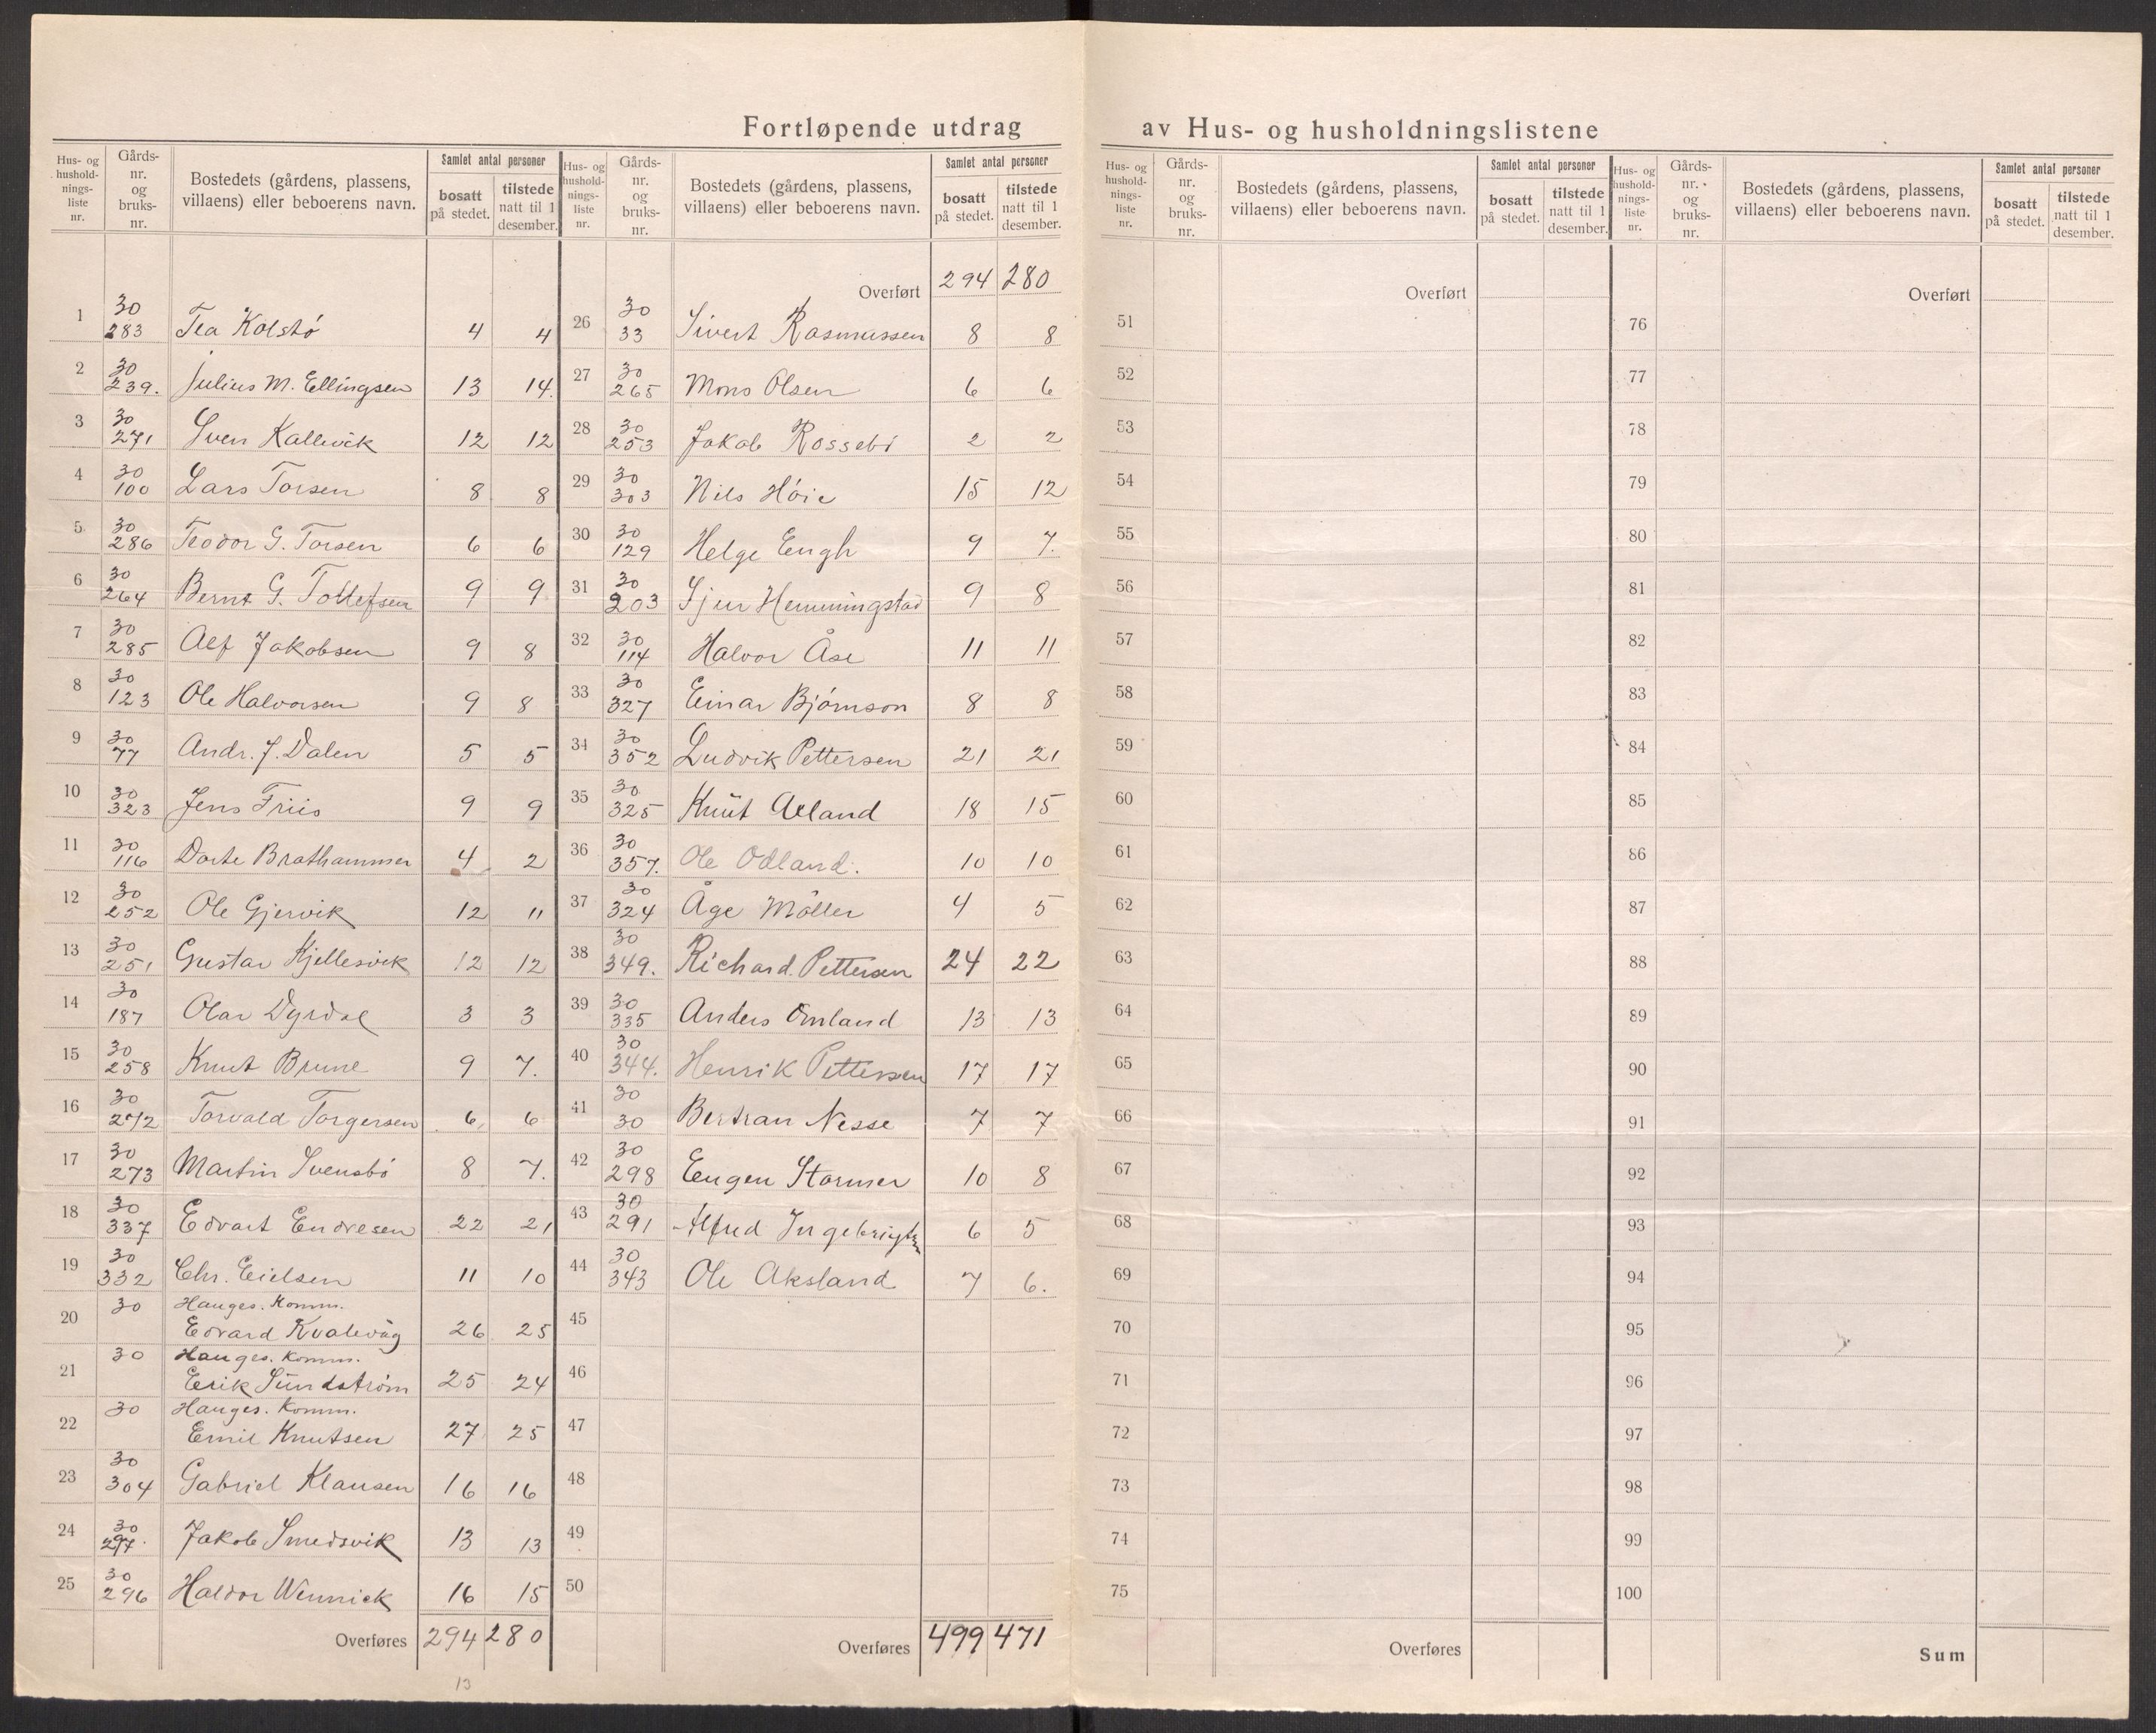 Fortløpende utdrag av Hus- og husholdningslistene
Hus- og hushold-nings-liste nr. | Gårds-nr. og bruks-nr. | Bostedets (gårdens, plassens, villaens) eller beboerens navn. | Samlet antal personer | bosatt på stedet. | tilstede natt til 1 desember.
1 30 283 Tea Kolstó 4 4
2 30 239. Julius M. Ellingsen 13 14.
3 30 271 Sven Kallevik 12 12
4 30 100 Lars Torsen 8 8
5 30 286 Teodor G. Torsen 6 6
6 30 264 Bernt G. Tollefsen 9 9
7 30 285 Alf Jakobsen 9 8
8 30 123 Ole Halvorsen 9 8
9 30 77 Andr. J. Dalen 5 5
10 30 323 Jens Friis 9 9
11 30 116 Dorte Brathammer 4 2
12 30 252 Ole Gjervik 12 11
13 30 251 Gustav Kjellesvik 12 12
14 30 187 Olav Dyrdal 3 3
15 30 258 Knut Brune 9 7.
16 30 272 Torvald Torgersen 6 6
17 30 273 Martin Svensbó 8 7.
18 30 337 Edvart Endresen 22 21
19 30 332 Chr. Eielsen 11 10
20 30 Hauges. Komm.
Edvard Kvalevåg 26 25
21 30 Hauges. Komm.
Erik Sundström 25 24
22 30 Hauges. Komm.
Emil Knutsen 27 25
23 30 304 Gabriel Klausen 16 16
24 30 297. Jakob Smedsvik 13 13
25 30 296 Haldor Wennick 16 15
Overføres 294 280
13
Hus- og hushold-nings-liste nr. | Gårds-nr. og bruks-nr. | Bostedets (gårdens, plassens, villaens) eller beboerens navn. | Samlet antal personer | bosatt på stedet. | tilstede natt til 1 desember.
Overført 294 280
26 30 33 Sivert Rasmussen 8 8
27 30 265 Mons Olsen 6 6
28 30 253 Jakob Rossebó 2 2
29 30 303 Nils Hóie 15 12
30 30 129 Helge Engh 9 7.
31 30 203 Sjur Hemmingstad 9 8
32 30 114 Halvor Åse 11 11
33 30 327 Einar Bjórnson 8 8
34 30 352 Ludvik Pettersen 21 21
35 30 325 Knut Aaland 18 15
36 30 357. Ole Odland. 10 10
37 30 324 Åge Móller 4 5
38 30 349. Richard. Pettersen 24 22
39 30 335 Anders Omland 13 13
40 30 344. Henrik Pettersen 17 17
41 30 30 Bertran Nesse 7 7
42 30 298 Eugen Stormer 10 8
43 30 291 Alfred Ingebrigtsen 6 5
44 30 343 Ole Aksland 7 6.
45
46
47
48
49
50
Overføres 499 471
Hus- og hushold-nings-liste nr. | Gårds-nr. og bruks-nr. | Bostedets (gårdens, plassens, villaens) eller beboerens navn. | Samlet antal personer | bosatt på stedet. | tilstede natt til 1 desember.
Overført
51
52
53
54
55
56
57
58
59
60
61
62
63
64
65
66
67
68
69
70
71
72
73
74
75
Overføres
Hus- og hushold-nings-liste nr. | Gårds-nr. og bruks-nr. | Bostedets (gårdens, plassens, villaens) eller beboerens navn. | Samlet antal personer | bosatt på stedet. | tilstede natt til 1 desember.
Overført
76
77
78
79
80
81
82
83
84
85
86
87
88
89
90
91
92
93
94
95
96
97
98
99
100
Sum